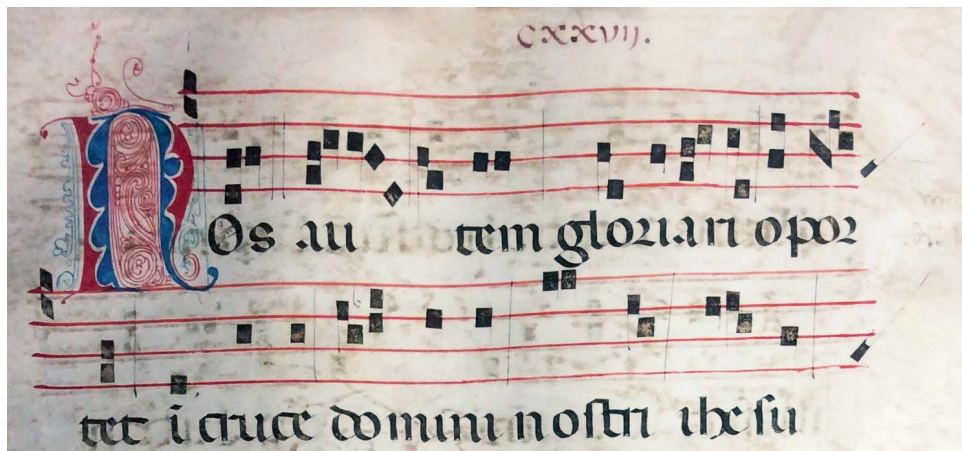 CXXVII.
NOs au tem gloriari opor
tet i cruce domini nostri ihesu